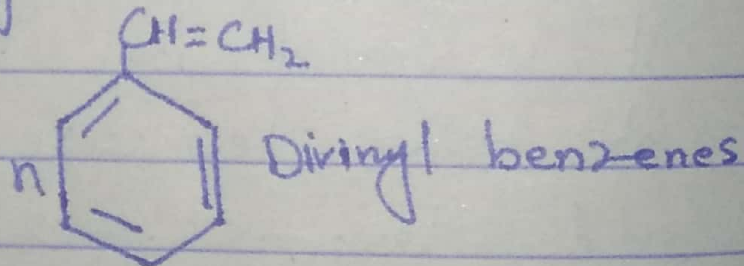 CH=CH₂
n
Divinyl benzenes